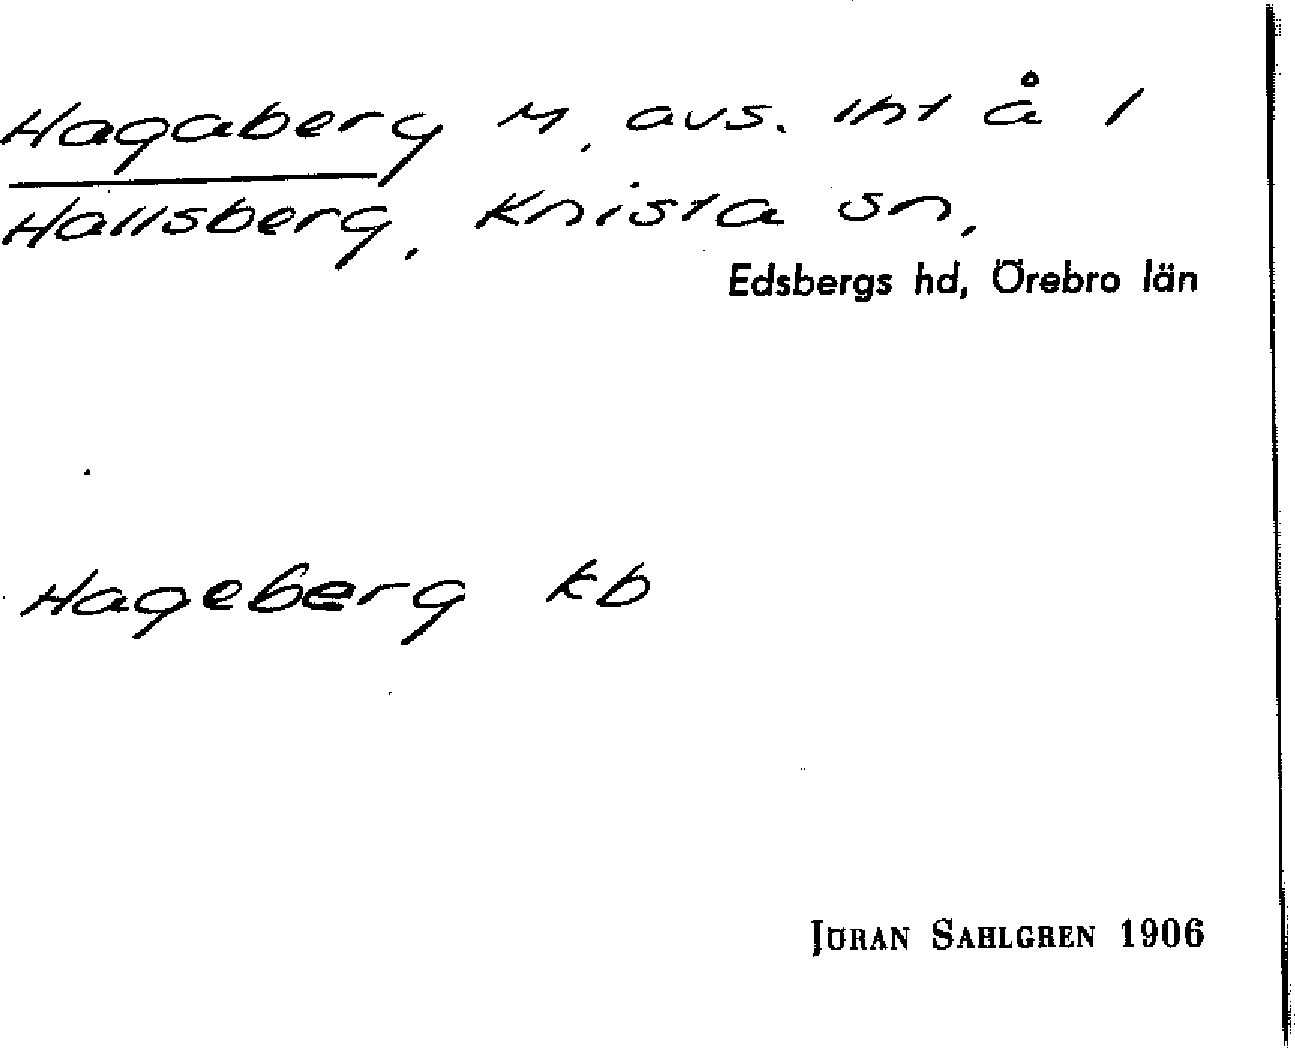 Hagaberg M, avs. lht å 1
Hallsberg, Knista sn,
Edsbergs hd, Örebro län
Hageberg kb
JÖRAN SAHLGREN 1906